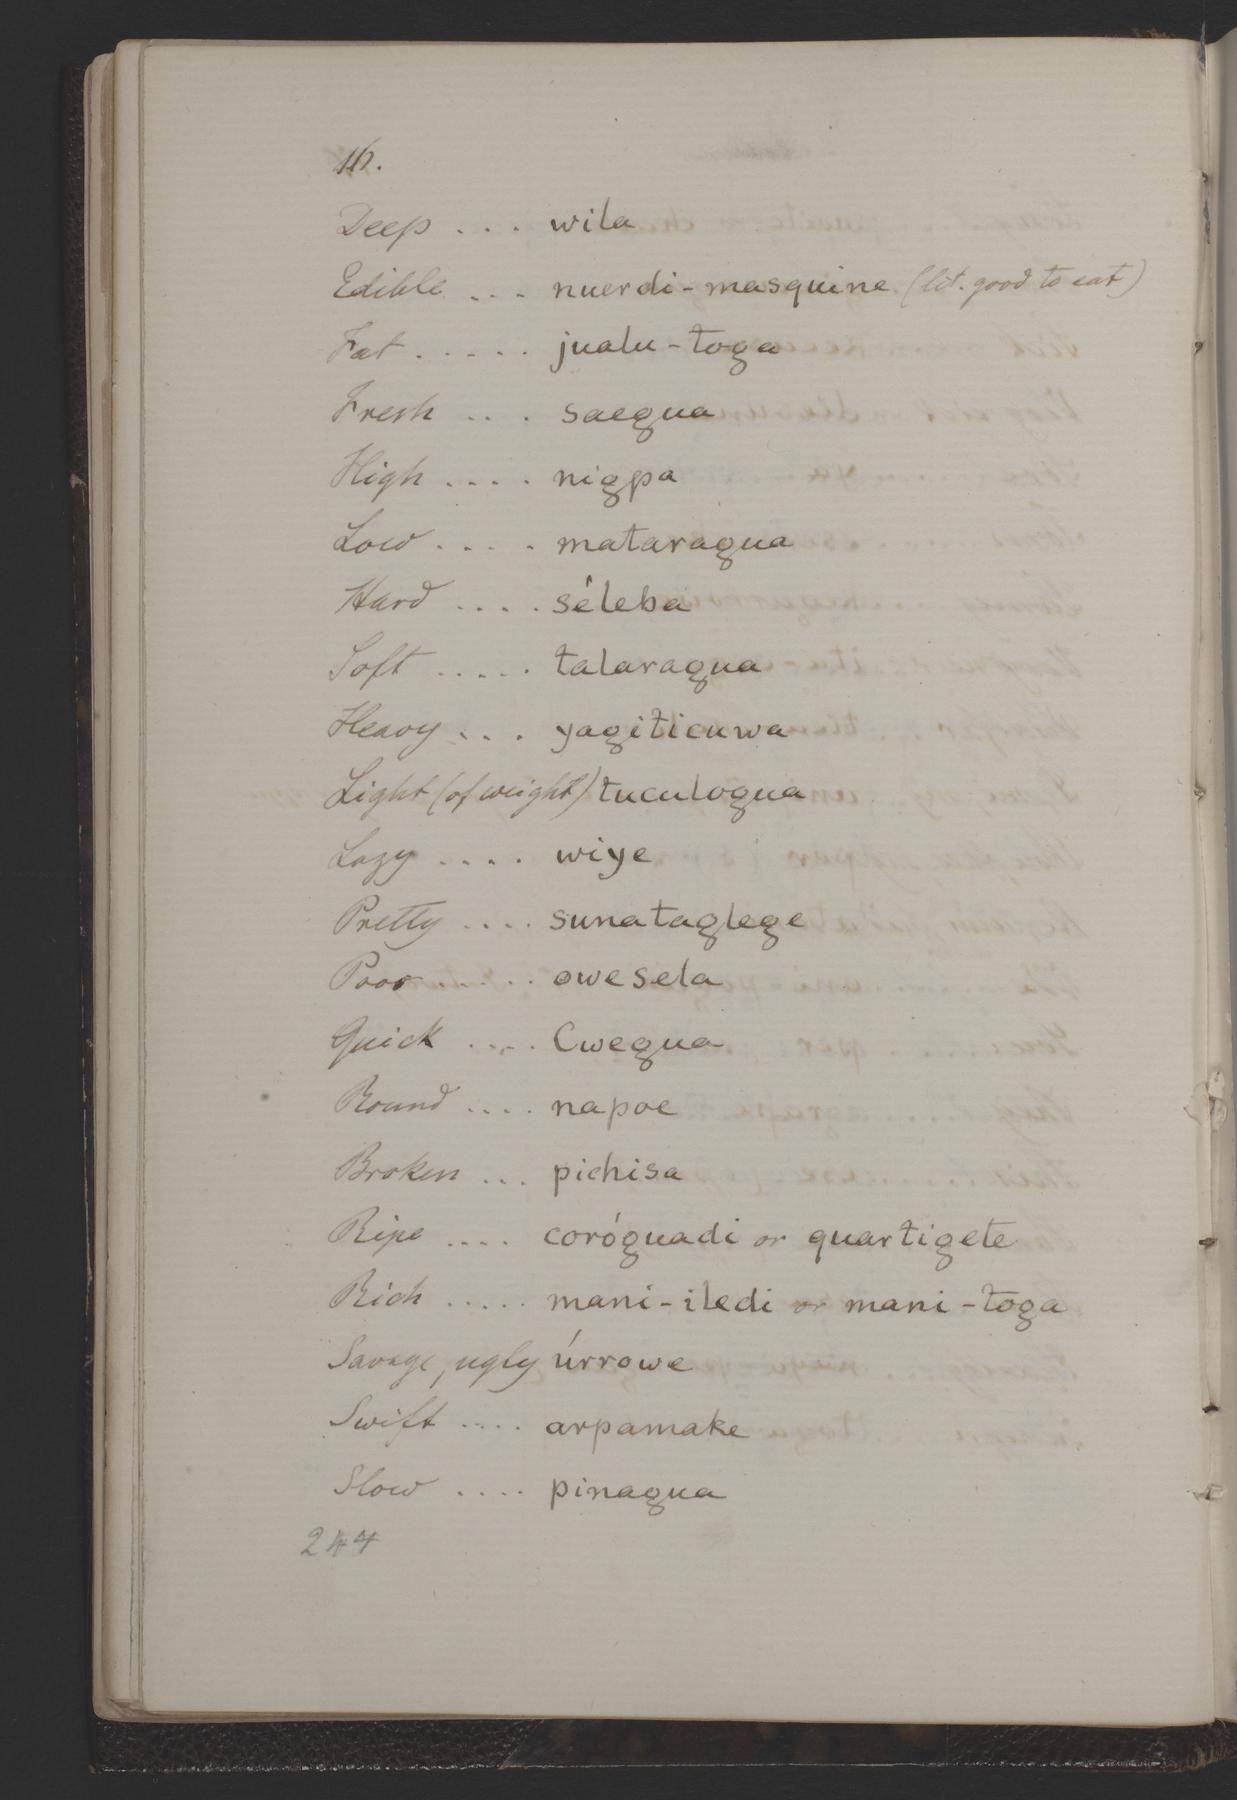 16.
Deep . . . wila
Edible . . . nuerdi-masquine (lit. good to eat)
Fat . . . . . jualu-toga
Fresh . . . saegua
High . . . . nigpa
Low . . . . mataragua
Hard . . . . séleba
Soft . . . . . talaragua
Heavy . . . yagiticuwa
Light (of weight) tuculogua
Lazy . . . . wiye
Pretty . . . . sunataglege
Poor . . . . . owesela
Quick . . . . Cwegua
Round . . . . napoe
Broken . . . pichisa
Ripe . . . . coróguadi or quartigete
Rich . . . . . mani-iledi or mani-toga
Savage, ugly úrrowe
Swift . . . . arpamake
Slow . . . . pinagua
244